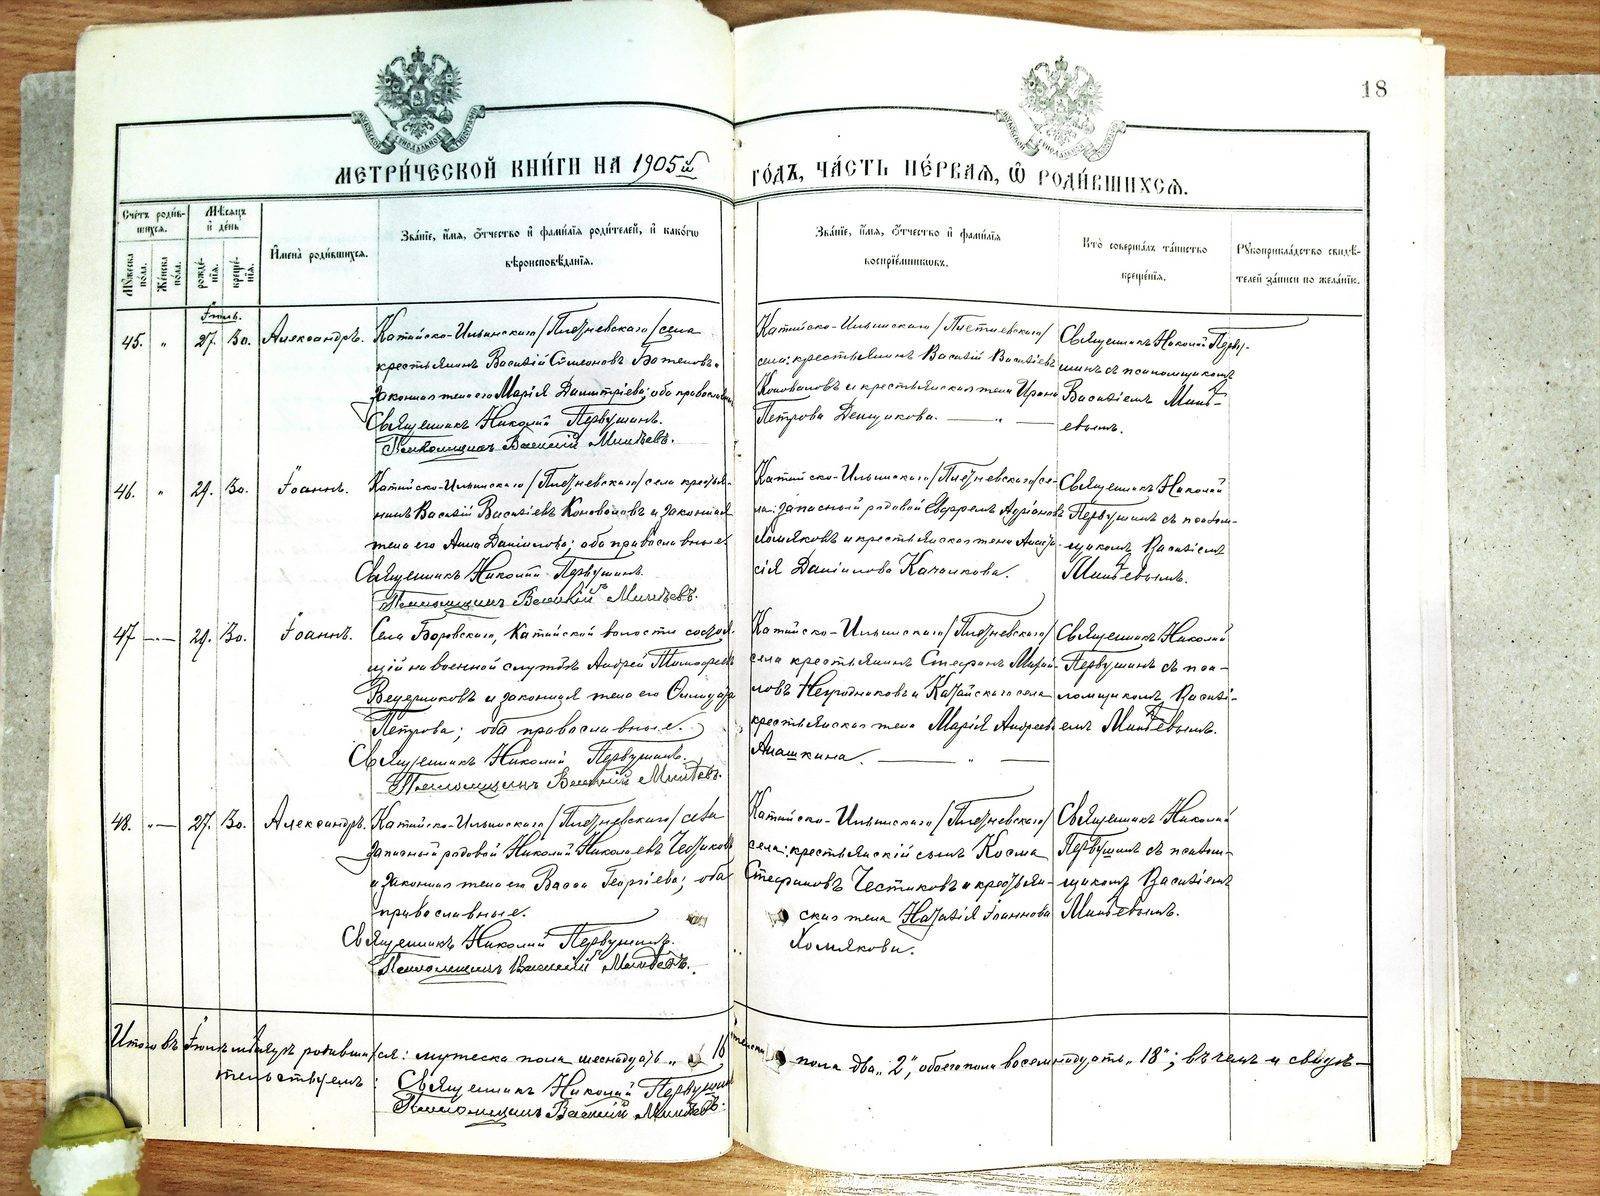 18
МЕТРИ́ЧЕСКОЙ КНИ́ГИ НА 1905й ГО́ДЪ, ЧА́СТЬ ПЕ́РВАѦ, Ѡ РОДИ́ВШИХСѦ.
Сче́тъ роди́вшихсѧ.
Мꙋ́жеска по́ла.
Же́нска по́ла.
Мѣ́сѧцъ и де́нь
рожде́нїѧ.
креще́нїѧ.
Имена̀ роди́вшихсѧ.
Зва́нїе, и́мѧ, ѻ́тчество и фами́лїѧ роди́телей, и како́гѡ
вѣроисповѣ́данїѧ.
Зва́нїе, и́мѧ, ѻ́тчество и фами́лїѧ
воспрїе́мникѡвъ.
Кто̀ соверша́лъ та́инство
креще́нїѧ.
Рꙋкоприкла́дство свидѣ́-
телей за́писи по жела́нїю.
Іюль.
45. " 27. 30. Александръ.
Катайско-Ильинскаго
села
крестьянинъ Василій Симеоновъ
законная жена его Марія Димитріева; оба православные
Священникъ Николай Первушинъ.
Псаломщикъ Василій Минѣевъ.
Катайско-Ильинскаго
села: крестьянинъ Василій Васильевъ
Коноваловъ и крестьянская жена
Петрова Денщикова.
Священникъ Николай Перву-
шинъ съ псаломщикомъ
Василіемъ Минѣ-
евымъ.
46. " 29. 30. Іоаннъ.
Катайско-Ильинскаго
села крестья-
нинъ Василій Васильевъ Коноваловъ и законная
жена его Анна Даніилова; оба православные.
Священникъ Николай Первушинъ.
Псаломщикъ Василій Минѣевъ.
Катайско-Ильинскаго
се-
ла: запасный рядовой Адріановъ
Хомяковъ и крестьянская жена Анаста-
сія Даніилова Качалкова.
Священникъ Николай
Первушинъ съ псалом-
щикомъ Василіемъ
Минѣевымъ.
47 29. 30. Іоаннъ.
Села Боровскаго, Катайской волости состоя-
щій на военной службѣ Андрей Тимофеевъ
и законная жена его
Петрова; оба православные.
Священникъ Николай Первушинъ.
Псаломщикъ Василій Минѣевъ.
Катайско-Ильинскаго
села крестьянинъ Стефанъ
и Катайскаго села
крестьянская жена Марія Андреева
Анашкина.
Священникъ Николай
Первушинъ съ пса-
ломщикомъ Василі-
емъ Минѣевымъ.
48. 27. 30. Александръ.
Катайско-Ильинскаго
села
запасный рядовой Николай Николаевъ Честиковъ
и законная жена его Васса Георгіева; оба
православные.
Священникъ Николай Первушинъ.
Псаломщикъ Василій Минѣевъ.
Катайско-Ильинскаго
села: крестьянскій сынъ Косма
Стефановъ Честиковъ и крестьян-
ская жена Наталія Іоаннова
Хомякова.
Священникъ Николай
Первушинъ съ псалом-
щикомъ Василіемъ
Минѣевымъ.
Итого въ Іюлѣ мѣсяцѣ родившихся: мужеска пола шестнадцать „ 16 женска пола два „2", обоего пола восемнадцать „18"; въ чемъ и свидѣ-
тельствуемъ: Священникъ Николай Первушинъ
Псаломщикъ Василій Минѣевъ.